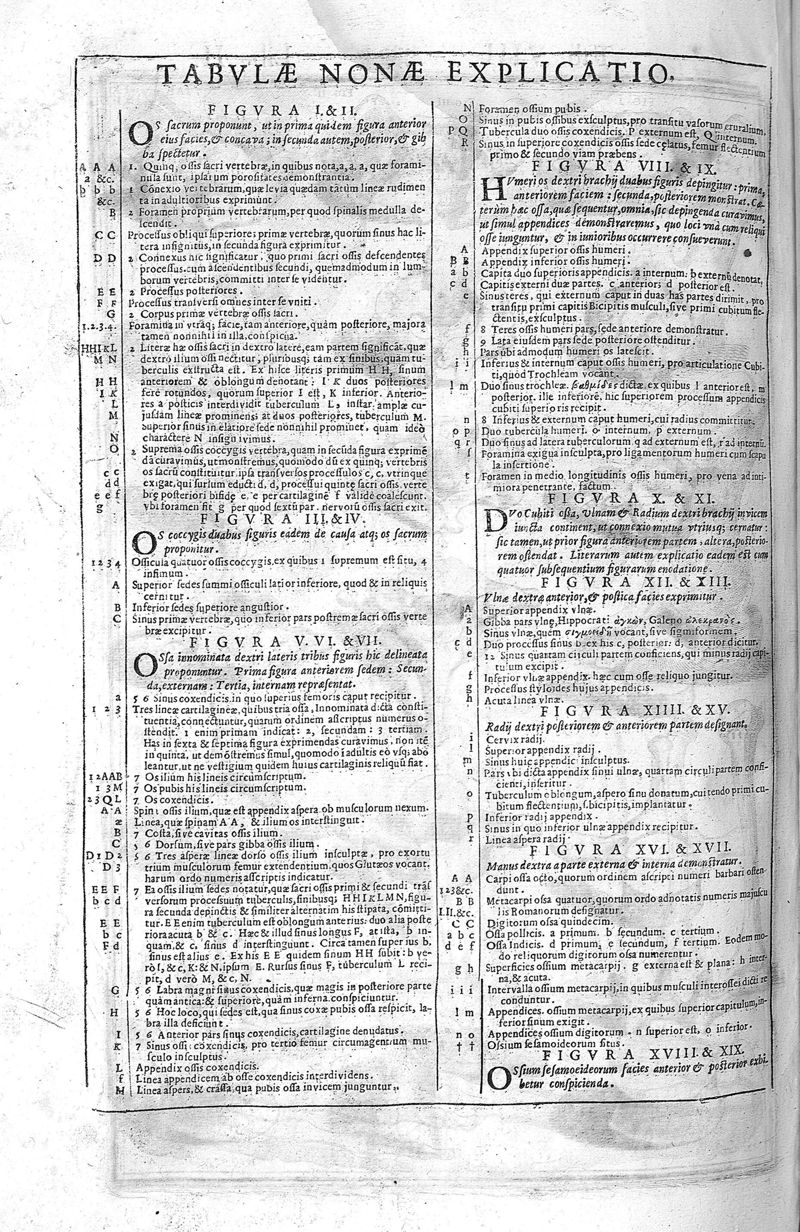 TABVLÆ NONÆ EXPLICATIO.
FIGVRA I. & II.
OS sacrum proponunt, ut in prima quidem figura anterior
eius facies, & concava; in secunda autem, posterior, & gib
ba spectetur.
A A A 1. Quinq; ossis sacri vertebræ, in quibus nota, a, a, a, quæ forami-
a &c. nula sunt, ipsarum porositates demonstrantia.
b b b 1 Conexio vertebrarum, quæ levia quædam tãtum lineæ rudimen
&c. ta in adultioribus exprimunt.
B 2 Foramen proprium vertebrarum, per quod spinalis medulla de-
scendit.
C C Processus obliqui superiores primæ vertebræ, quorum sinus hac li
tera insignitus, in secunda figura exprimitur.
D D 2 Connexus hic significatur, quo primi sacri ossis descendentes
processus cum ascendentibus secundi, quemadmodum in lum-
borum vertebris, committi inter se videntur.
E E 2 Processus posteriores.
F F Processus transversi omnes inter se uniti.
G 2 Corpus primæ vertebræ ossis sacri.
1.2.3.4. Foramina in vtraq; facie, tam anteriore, quàm posteriore, majora
tamen nonnihil in illa, conspicua.
HHIKL 2 Literæ hæ ossis sacri in dextro latere, eam partem significãt, quæ
M N dextro ilium ossi nectitur, pluribusq; tam ex sinibus, quàm tu-
berculis exstructa est. Ex hisce literis primùm H H, sinum
H H anteriorem & oblongum denotant: I K duos posteriores
I K ferè rotundos, quorum superior I est, K inferior. Anterio-
L res à posticis interdividit tuberculum L, instar amplæ cu-
M jusdam lineæ prominens: at duos posteriores, tuberculum M.
Superior sinus in elatiore sede nonnihil prominet, quam ideò
N charactere N insignivimus.
O 2 Suprema ossis coccygis vertebra, quam in secũda figura exprimẽ
dã curavimus, ut monstremus, quomodo dũ ex quinq; vertebris
c c os sacrũ constituitur, ipsa transversos processulos c, c, vtrinque
d d exigat, qui sursum educti d, d, processui quintæ sacri ossis verte
e e f bræ posteriori bifidę e, e per cartilaginẽ f validè coalescunt.
g vbi foramen fit g per quod sextũ par nervorũ ossis sacri exit.
FIGVRA III. & IV.
OS coccygis duabus figuris eadem de causa atq; os sacrum
proponitur.
1 2 3 4 Ossicula quatuor ossis coccygis, ex quibus 1 supremum est situ, 4
infimum.
A Superior sedes summi ossiculi latior inferiore, quod & in reliquis
cernitur.
B Inferior sedes superiore angustior.
C Sinus primæ vertebræ, quo inferior pars postremæ sacri ossis verte
bræ excipitur.
FIGVRA V. VI. & VII.
OSsa innominata dextri lateris tribus figuris hic delineata
proponuntur. Prima figura anteriorem sedem: Secun-
da, externam: Tertia, internam repræsentat.
a 5 6 Sinus coxendicis, in quo superius femoris caput recipitur.
1 2 3 Tres lineæ cartilagineæ, quibus tria ossa, innominata dicta consti-
tuentia, connectuntur, quarum ordinem ascriptus numerus o-
stendit. 1 enim primam indicat: 2, secundam: 3 tertiam.
Has in sexta & septima figura exprimendas curavimus, non itẽ
in quinta, ut demõstremus simul, quomodo i adultis eò vsq; abo
leantur, ut ne vestigium quidem huius cartilaginis reliquũ fiat.
12AAB 7 Os ilium his lineis circumscriptum.
1 3 M 7 Os pubis his lineis circumscriptum.
23QL 7 Os coxendicis.
A A Spina ossis ilium, quæ est appendix aspera ob musculorum nexum.
æ Linea, quæ spinam A A, & ilium os interstinguit.
B 7 Costa, sive cavitas ossis ilium.
C 5 6 Dorsum, sive pars gibba ossis ilium.
D1 D2 5 6 Tres asperæ lineæ dorso ossis ilium insculptæ, pro exortu
D 3 trium musculorum femur extendentium, quos Glutæos vocant,
harum ordo numeris ascriptis indicatur.
E E F 7 Ea ossis ilium sedes notatur, quæ sacri ossis primi & secundi trãs
b c d versorum processuum tuberculis, sinibusq; HHIKLMN, figu-
ra secunda depinctis & similiter alternatim his stipata, cõmitti-
E E tur. E E enim tuberculum est oblongum anterius: duo alia poste
b c riora acuta b & c. Hæc & illud sinus longus F, at ista, b in-
F d quam, & c, sinus d interstinguunt. Circa tamen superius b,
sinus est alius e. Ex his E E quidem sinum HH subit: b ve-
rò I, & c, K: & N, ipsum E. Rursus sinus F, tuberculum L reci-
pit, d verò M, & c, N.
G 5 6 Labra magni sinus coxendicis, quæ magis in posteriore parte
quàm antica: & superiore, quàm inferna conspiciuntur.
H 5 6 Hoc loco, qui sedes est, qua sinus coxæ pubis ossa respicit, la-
bra illa deficiunt.
I 5 6 Anterior pars sinus coxendicis, cartilagine denudatus.
K 7 Sinus ossis coxendicis, pro tertio femur circumagentium mu-
sculo insculptus.
L Appendix ossis coxendicis.
f Linea appendicem ab osse coxendicis interdividens.
M Linea aspera, & crassa, qua pubis ossa invicem junguntur.
N Foramen ossium pubis.
O Sinus in pubis ossibus exsculptus, pro transitu vasorum cruralium.
P Q Tubercula duo ossis coxendicis. P externum est, Q internum.
R Sinus, in superiore coxendicis ossis sede cęlatus, femur flectentium
primo & secundo viam præbens.
FIGVRA VIII. & IX.
HVmeri os dextri brachij duabus figuris depingitur: prima,
anteriorem faciem: secunda, posteriorem monstrat. Cæ-
terùm hæc ossa, quæ sequentur, omnia, sic depingenda curavimus,
ut simul appendices demonstraremus, quo loci vnà cum reliqui
osse iunguntur, & in iunioribus occurrere consueverunt.
A Appendix superior ossis humeri.
B B Appendix inferior ossis humeri.
a b Capita duo superioris appendicis. a internum: b externũ denotat.
c d Capitis externi duæ partes. c anterior: d posterior est.
e Sinus teres, qui externum caput in duas has partes dirimit, pro
transitu primi capitis Bicipitis musculi, sive primi cubitum fle-
ctentis, exsculptus.
f 8 Teres ossis humeri pars, sede anteriore demonstratur.
g 9 Lata eiusdem pars sede posteriore ostenditur.
h Pars ubi admodum humeri os latescit.
i i Inferius & internum caput ossis humeri, pro articulatione Cubi-
ti, quod Trochleam vocant.
l m Duo sinus trochleæ, βαθμίδες dictæ, ex quibus l anterior est, m
posterior. ille inferiorẽ, hic superiorem processum appendicis
cubiti superioris recipit.
n 8 Inferius & externum caput humeri, cui radius committitur.
o p Duo tubercula humeri. o internum. p externum.
q r Duo sinus ad latera tuberculorum q ad externum est, r ad internũ.
s Foramina exigua insculpta, pro ligamentorum humeri cum scapu
la insertione.
t Foramen in medio longitudinis ossis humeri, pro vena ad inti-
miora penetrante, factum.
FIGVRA X. & XI.
DVo Cubiti ossa, Vlnam & Radium dextri brachij invicem
iuncta continent, ut connexio mutua vtriusq; cernatur:
sic tamen, ut prior figura anteriorem partem, altera, posterio-
rem ostendat. Literarum autem explicatio eadem est cum
quatuor subsequentium figurarum enodatione.
FIGVRA XII. & XIII.
Vlnæ dextræ anterior, & postica facies exprimitur.
A Superior appendix vlnæ.
a Gibba pars vlnę, Hippocrati ἀγκών, Galeno ὠλέκρανος.
b Sinus vlnæ, quem σιγμοειδῆ vocant, sive sigmiformem.
c d Duo processus sinus b. ex his c, posterior: d, anterior dicitur.
e 12 Sinus quartam circuli partem conficiens, qui minus radij capi-
tulum excipit.
f Inferior vlnæ appendix. hæc cum osse reliquo jungitur.
g Processus styloides hujus appendicis.
h Acuta linea vlnæ.
FIGVRA XIIII. & XV.
Radij dextri posteriorem & anteriorem partem designant.
i Cervix radij.
l Superior appendix radij.
m Sinus huic appendici insculptus.
n Pars vbi dicta appendix sinui ulnæ, quartam circuli partem confi-
cienti, inseritur.
o Tuberculum oblongum, aspero sinu donatum, cui tendo primi cu-
bitum flectentium, s. bicipitis, implantatur.
p Inferior radij appendix.
q Sinus in quo inferior ulnæ appendix recipitur.
r Linea aspera radij.
FIGVRA XVI. & XVII.
Manus dextra à parte externa & interna demonstratur.
A A Carpi ossa octo, quorum ordinem ascripti numeri barbari osten-
1 2 3 &c. dunt.
B B Metacarpi ossa quatuor, quorum ordo adnotatis numeris majuscu
I. II. &c. lis Romanorum designatur.
C C Digitorum ossa quindecim.
a b c Ossa pollicis. a primum. b secundum. c tertium.
d e f Ossa Indicis. d primum, e secundum, f tertium. Eodem mo-
do reliquorum digitorum ossa numerentur.
g h Superficies ossium metacarpij. g externa est & plana: h inter-
na, & acuta.
i i i Intervalla ossium metacarpij, in quibus musculi interossei dicti re
conduntur.
l m Appendices ossium metacarpij, ex quibus superior capitulum, in-
ferior sinum exigit.
n o Appendices ossium digitorum. n superior est, o inferior.
† † Ossium sesamoideorum situs.
FIGVRA XVIII. & XIX.
OSsium sesamoideorum facies anterior & posterior exhi-
betur conspicienda.